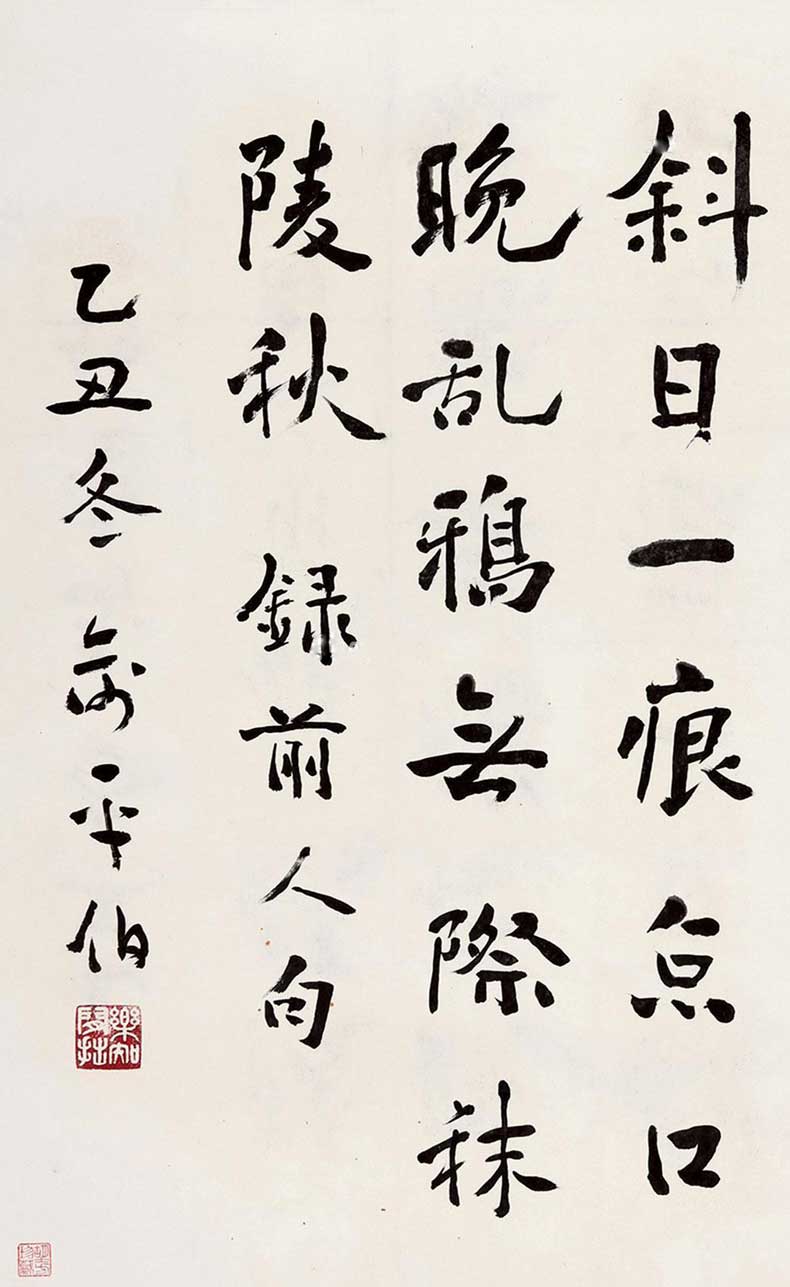 斜日一痕点口
晚乱鴉無際秣
陵秋 録前人句
乙丑冬 俞平伯